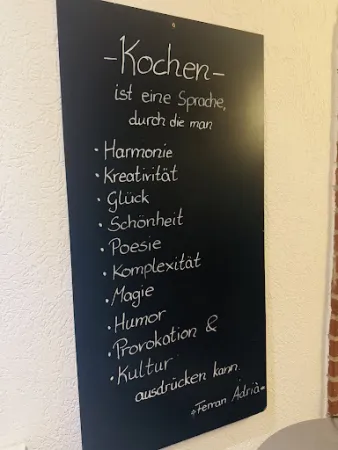 -Kochen-
ist eine Sprache,
durch die man
• Harmonie
• Kreativität
• Glück
• Schönheit
• Poesie
• Komplexität
• Magie
• Humor
• Provokation &
• Kultur
ausdrücken kann.
*Ferran Adrià*